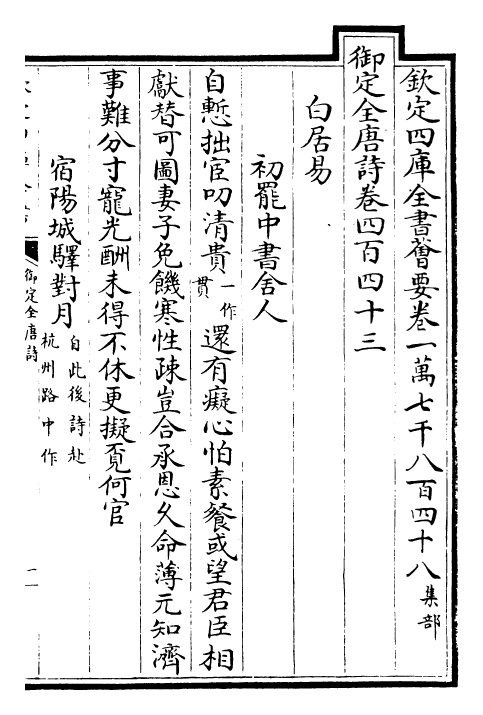 欽定四庫全書薈要卷一萬七千八百四十八 集部
御定全唐詩卷四百四十三
白居易
初罷中書舍人
自慙拙宦叨清貴一作貫還有癡心怕素餐或望君臣相
獻替可圖妻子免饑寒性疎豈合承恩久命薄元知濟
事難分寸寵光酬未得不休更擬覔何官
宿陽城驛對月自此後詩赴杭州路中作
御定全唐詩